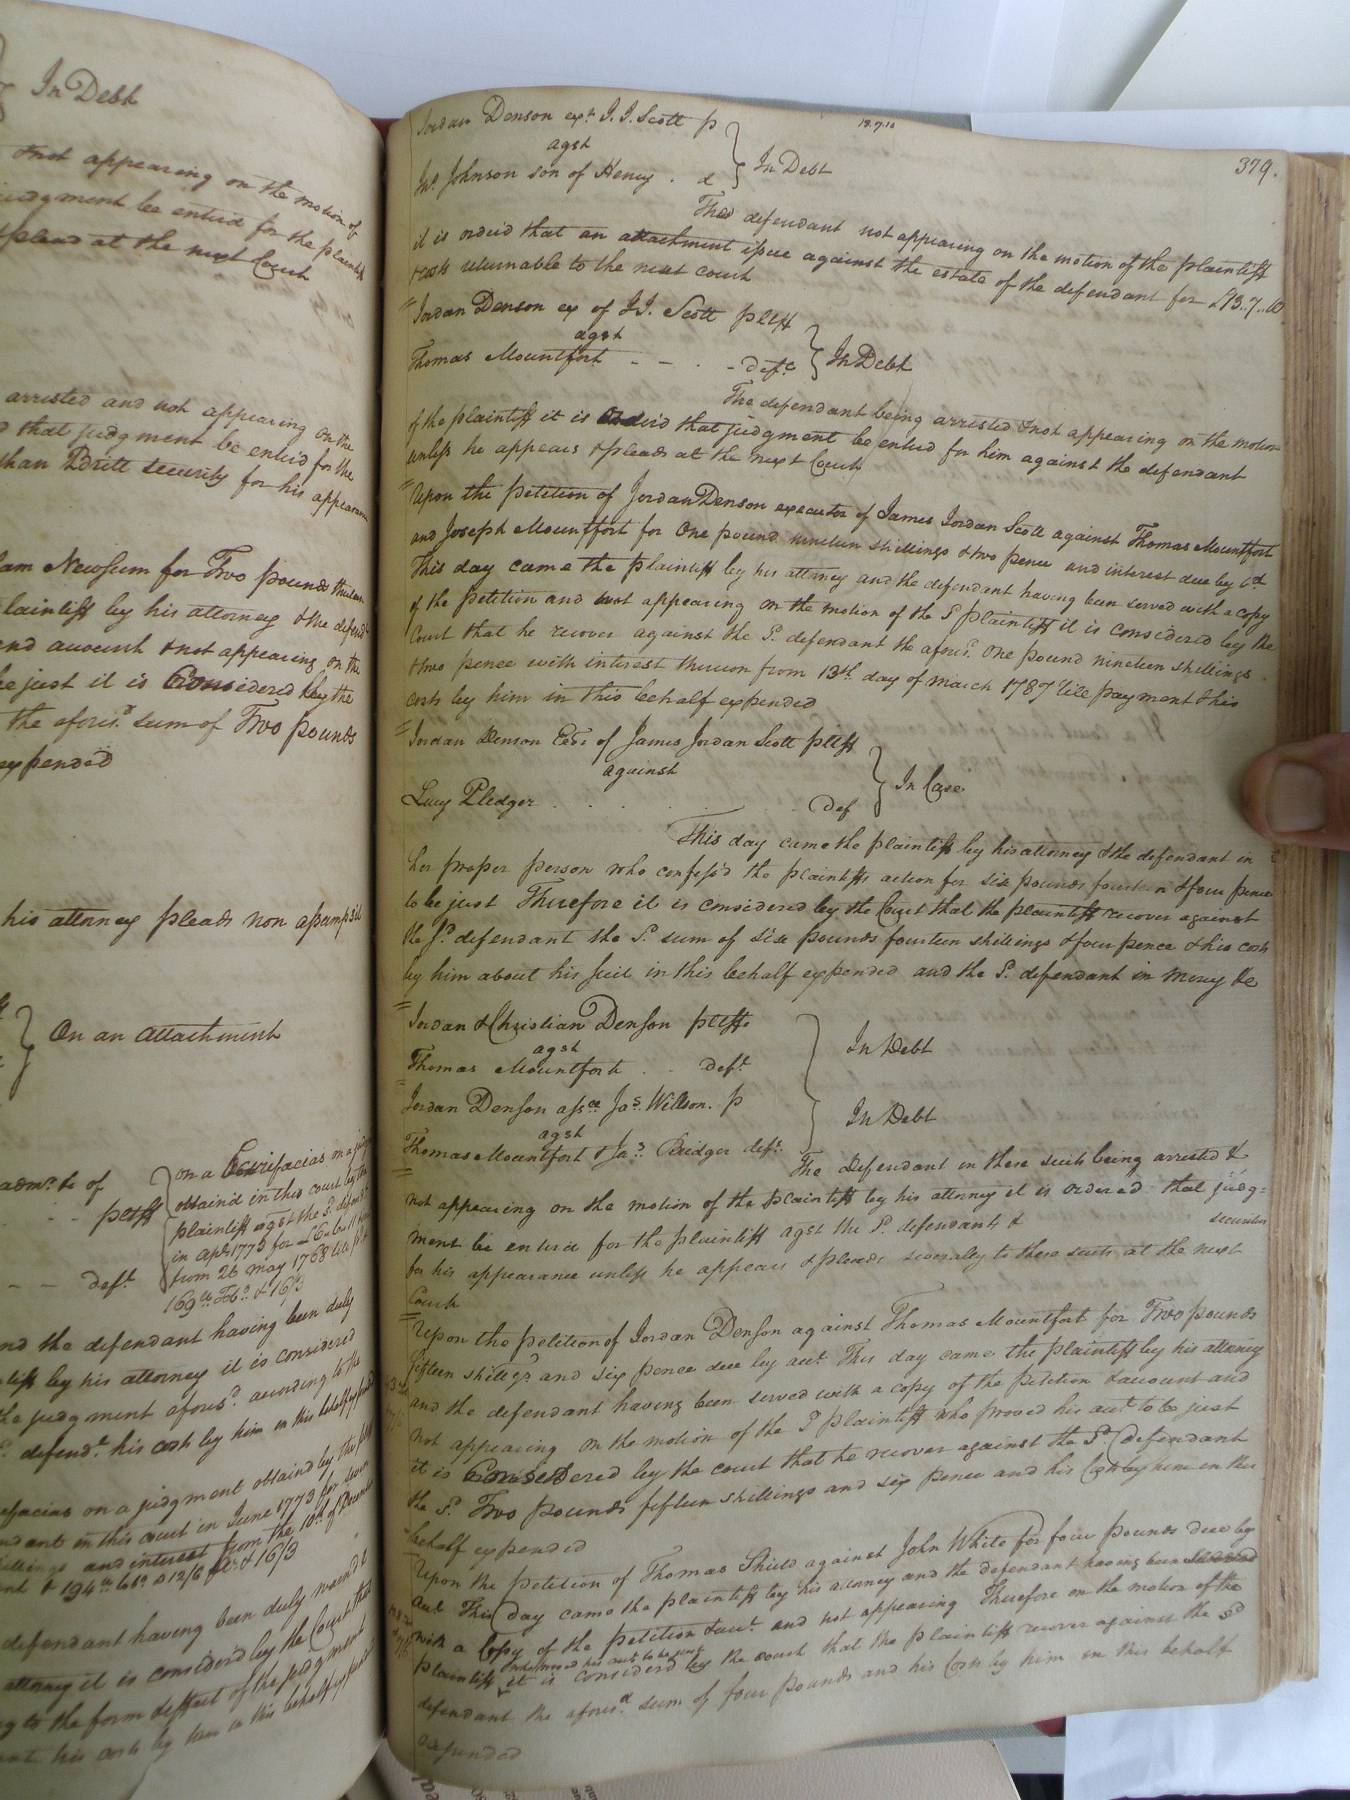 In Debt
& not appearing on the motion of
judgment be enterd for the plaintiff
& plead at the next Court
arrested and not appearing on the
d that judgment be enterd for the
than Britt security for his appearance
iam Newsum for Two pounds thirteen
laintiff by his attorney & the defendt
and account & not appearing on the
be just it is Considered by the
the aforesd sum of Two pounds
expended
his attorney pleads non assumpsit
On an attachment
admr &c of
pltff
deft
on a Scirifacias on a judg
obtaind in this court by the
plaintiff agst the Sd defendt
in apl 1773 for
from 26 may 1768 till
169 lbs Tobo & 16/3
and the defendant having been duly
tiff by his attorney it is considerd
the judgment aforesd according to the
defendt his costs by him in this behalf expended
refacias on a judgment obtaind by the
ndant in this court in June 1773 for
illings and interest from the 10th of December
& 194 lbs a 12/6 & 16/3
defendant having been duly warnd &
attorney it is considerd by the Court that
to the form & effect of the judgment
his costs by him in this behalf expended
13.7.10
379.
Jordan Denson exr J. J. Scott p
agst
Jno Johnson son of Henry . d
In Debt
The defendant not appearing on the motion of the plaintiff
it is orderd that an attachment issue against the estate of the defendant for £13..7..10
& costs returnable to the next court
Jordan Denson ex of J J. Scott pltff
agst
Thomas Mountfort - - . - deft
In Debt
The defendant being arrested & not appearing on the motion
of the plaintiff it is Orderd that judgment be enterd for him against the defendant
unless he appears & pleads at the next Court
Upon the petition of Jordan Denson executor of James Jordan Scott against Thomas Mountfort
and Joseph Mountfort for One pound nineteen shillings & two pence and interest due by
This day came the plaintiff by his attorney and the defendant having been served with a copy
of the petition and not appearing on the motion of the S plaintiff it is considered by the
Court that he recover against the Sd defendant the aforesd One pound nineteen shillings
& two pence with interest thereon from 13th day of march 1787 till payment & his
costs by him in this behalf expended
Jordan Denson Exr of James Jordan Scott pltff
against
Lucy Pledger . . . . . Def
In Case
This day came the plaintiff by his attorney & the defendant in
her proper person who confess'd the plaintiffs action for six pounds fourteen & four pence
to be just Therefore it is considered by the Court that the plaintiff recover against
the sd defendant the Sd sum of six pounds fourteen shillings & four pence & his costs
by him about his suit in this behalf expended and the Sd defendant in mercy &c
Jordan & Christian Denson pltffs
agst
Thomas Mountfort . . deft
In Debt
Jordan Denson assee Jas Willson. p
agst
Thomas Mountfort & Jas Bridger deft.
In Debt
The Defendant in these suits being arrested &
not appearing on the motion of the plaintiff by his attorney it is ordered that judg=
ment be enterd for the plaintiff agst the Sd defendants & securities
for his appearance unless he appears & pleads severally to these suits at the next
Court
Upon the petition of Jordan Denson against Thomas Mountfort for Two pounds
fifteen shillgs and six pence due by acct. This day came the plaintiff by his attorney
and the defendant having been served with a copy of the petition & account and
not appearing on the motion of the S plaintiff who proved his acct to be just
it is Considered by the court that he recover against the Sd defendant
the Sd Two pounds fifteen shillings and six pence and his Costs by him in this
behalf expended
Upon the petition of Thomas Shield against John White for four pounds due by
acct This day came the plaintiff by his attorney and the defendant having been served
with a Copy of the petition & acct and not appearing Therefore on the motion of the
who proved his acct to be just
plaintiff it is considerd by the court that the plaintiff recover against the sd
defendant the aforesd sum of four pounds and his Costs by him in this behalf
expended